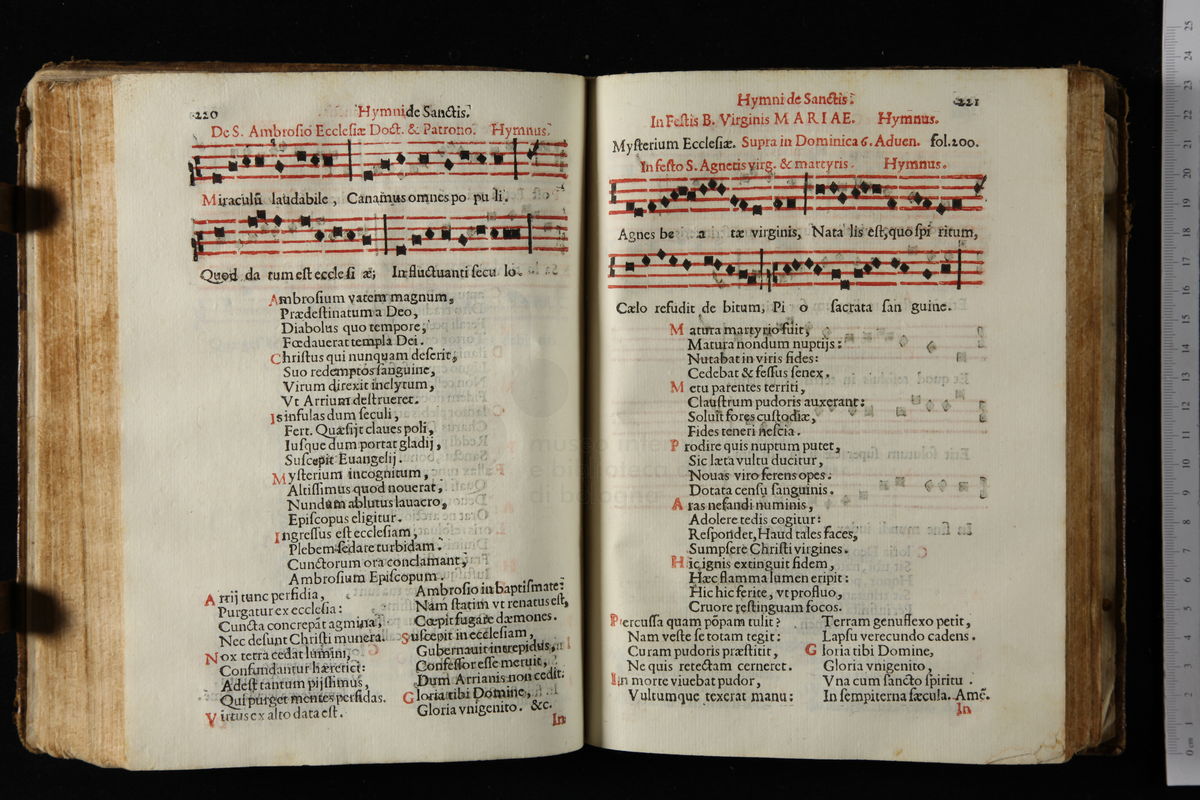 220 Hymni de Sanctis.
De S. Ambrosio Ecclesiæ Doct. & Patrono. Hymnus.
Miraculū laudabile, Canamus omnes po pu li.
Quod da tum est eccle si æ; In fluctuanti secu lo.
Ambrosium vatem magnum,
Prædestinatum a Deo,
Diabolus quo tempore,
Fœdauerat templa Dei.
Christus qui nunquam deserit,
Suo redemptos sanguine,
Virum direxit inclytum,
Vt Arrium destrueret.
Is infulas dum seculi,
Fert. Quæsijt claues poli,
Iusque dum portat gladij,
Suscepit Euangelij.
Mysterium incognitum,
Altissimus quod nouerat,
Nundum ablutus lauacro,
Episcopus eligitur.
Ingressus est ecclesiam,
Plebem sedare turbidam.
Cunctorum ora conclamant,
Ambrosium Episcopum.
Arrij tunc perfidia,
Purgatur ex ecclesia:
Cuncta concrepāt agmina,
Nec desunt Christi munera.
Nox tetra cedat lumini,
Confundantur hæretici:
Adest tantum pijssimus,
Qui purget mentes perfidas.
Virtus ex alto data est.
Ambrosio in baptismate:
Nam statim vt renatus est,
Cœpit fugare dæmones.
Suscepit in ecclesiam,
Gubernauit intrepidus,
Confessor esse meruit,
Dum Arrianis non cedit.
Gloria tibi Domine,
Gloria vnigenito. &c.
In
Hymni de Sanctis. 221
In Festis B. Virginis MARIAE. Hymnus.
Mysterium Ecclesiæ. Supra in Dominica 6. Aduen. fol. 200.
In festo S. Agnetis virg. & martyris. Hymnus.
Agnes be a tæ virginis, Nata lis est, quo spi ritum,
Cælo refudit de bitum, Pi o sacrata san guine.
Matura martyrio fuit,
Matura nondum nuptijs:
Nutabat in viris fides:
Cedebat & fessus senex.
Metu parentes territi,
Claustrum pudoris auxerant:
Soluit fores custodiæ,
Fides teneri nescia.
Prodire quis nuptum putet,
Sic læta vultu ducitur,
Nouas viro ferens opes:
Dotata censu sanguinis.
Aras nefandi numinis,
Adolere tedis cogitur:
Respondet, Haud tales faces,
Sumpsere Christi virgines.
Hic ignis extinguit fidem,
Hæc flamma lumen eripit:
Hic hic ferite, vt profluo,
Cruore restinguam focos.
Percussa quam pōpam tulit?
Nam veste se totam tegit:
Curam pudoris præstitit,
Ne quis retectam cerneret.
In morte viuebat pudor,
Vultumque texerat manu:
Terram genu flexo petit,
Lapsu verecundo cadens.
Gloria tibi Domine,
Gloria vnigenito,
Vna cum sancto spiritu.
In sempiterna sæcula. Amē.
In